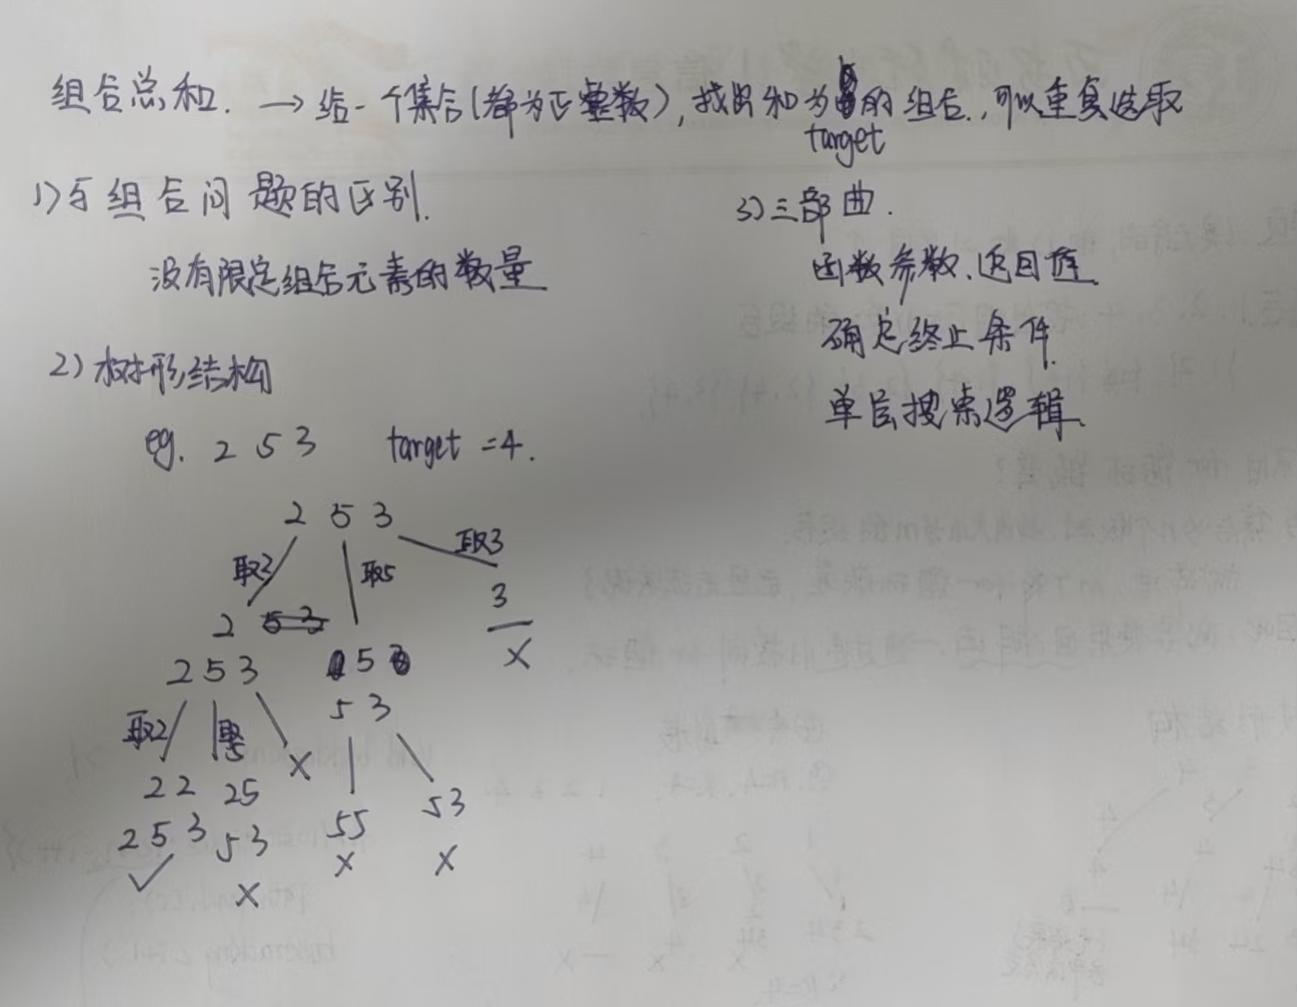 组合总和. → 给一个集合(都为正整数),找出和为的组合.,可以重复选取
target
1)与组合问题的区别.
没有限定组合元素的数量
2)树形结构
eg. 2 5 3 target =4.
2 5 3
取2 取5 取3
2 3
2 5 3 5
5 3 X
取2 取5
X
2 2 25 55 53
2 5 3 53 X X
✓ X
3)三部曲.
函数参数、返回值.
确定终止条件.
单层搜索逻辑.